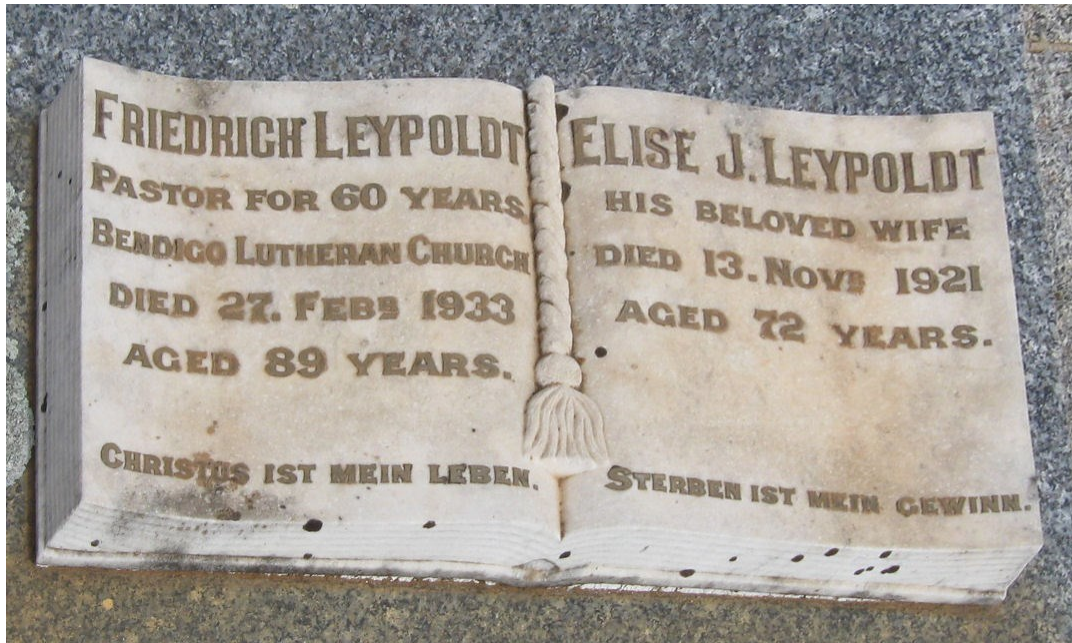 FRIEDRICH LEYPOLDT
PASTOR FOR 60 YEARS
BENDIGO LUTHERAN CHURCH
DIED 27. FEBR 1933
AGED 89 YEARS.
CHRISTUS IST MEIN LEBEN.
ELISE J. LEYPOLDT
HIS BELOVED WIFE
DIED 13. NOVR 1921
AGED 72 YEARS.
STERBEN IST MEIN GEWINN.